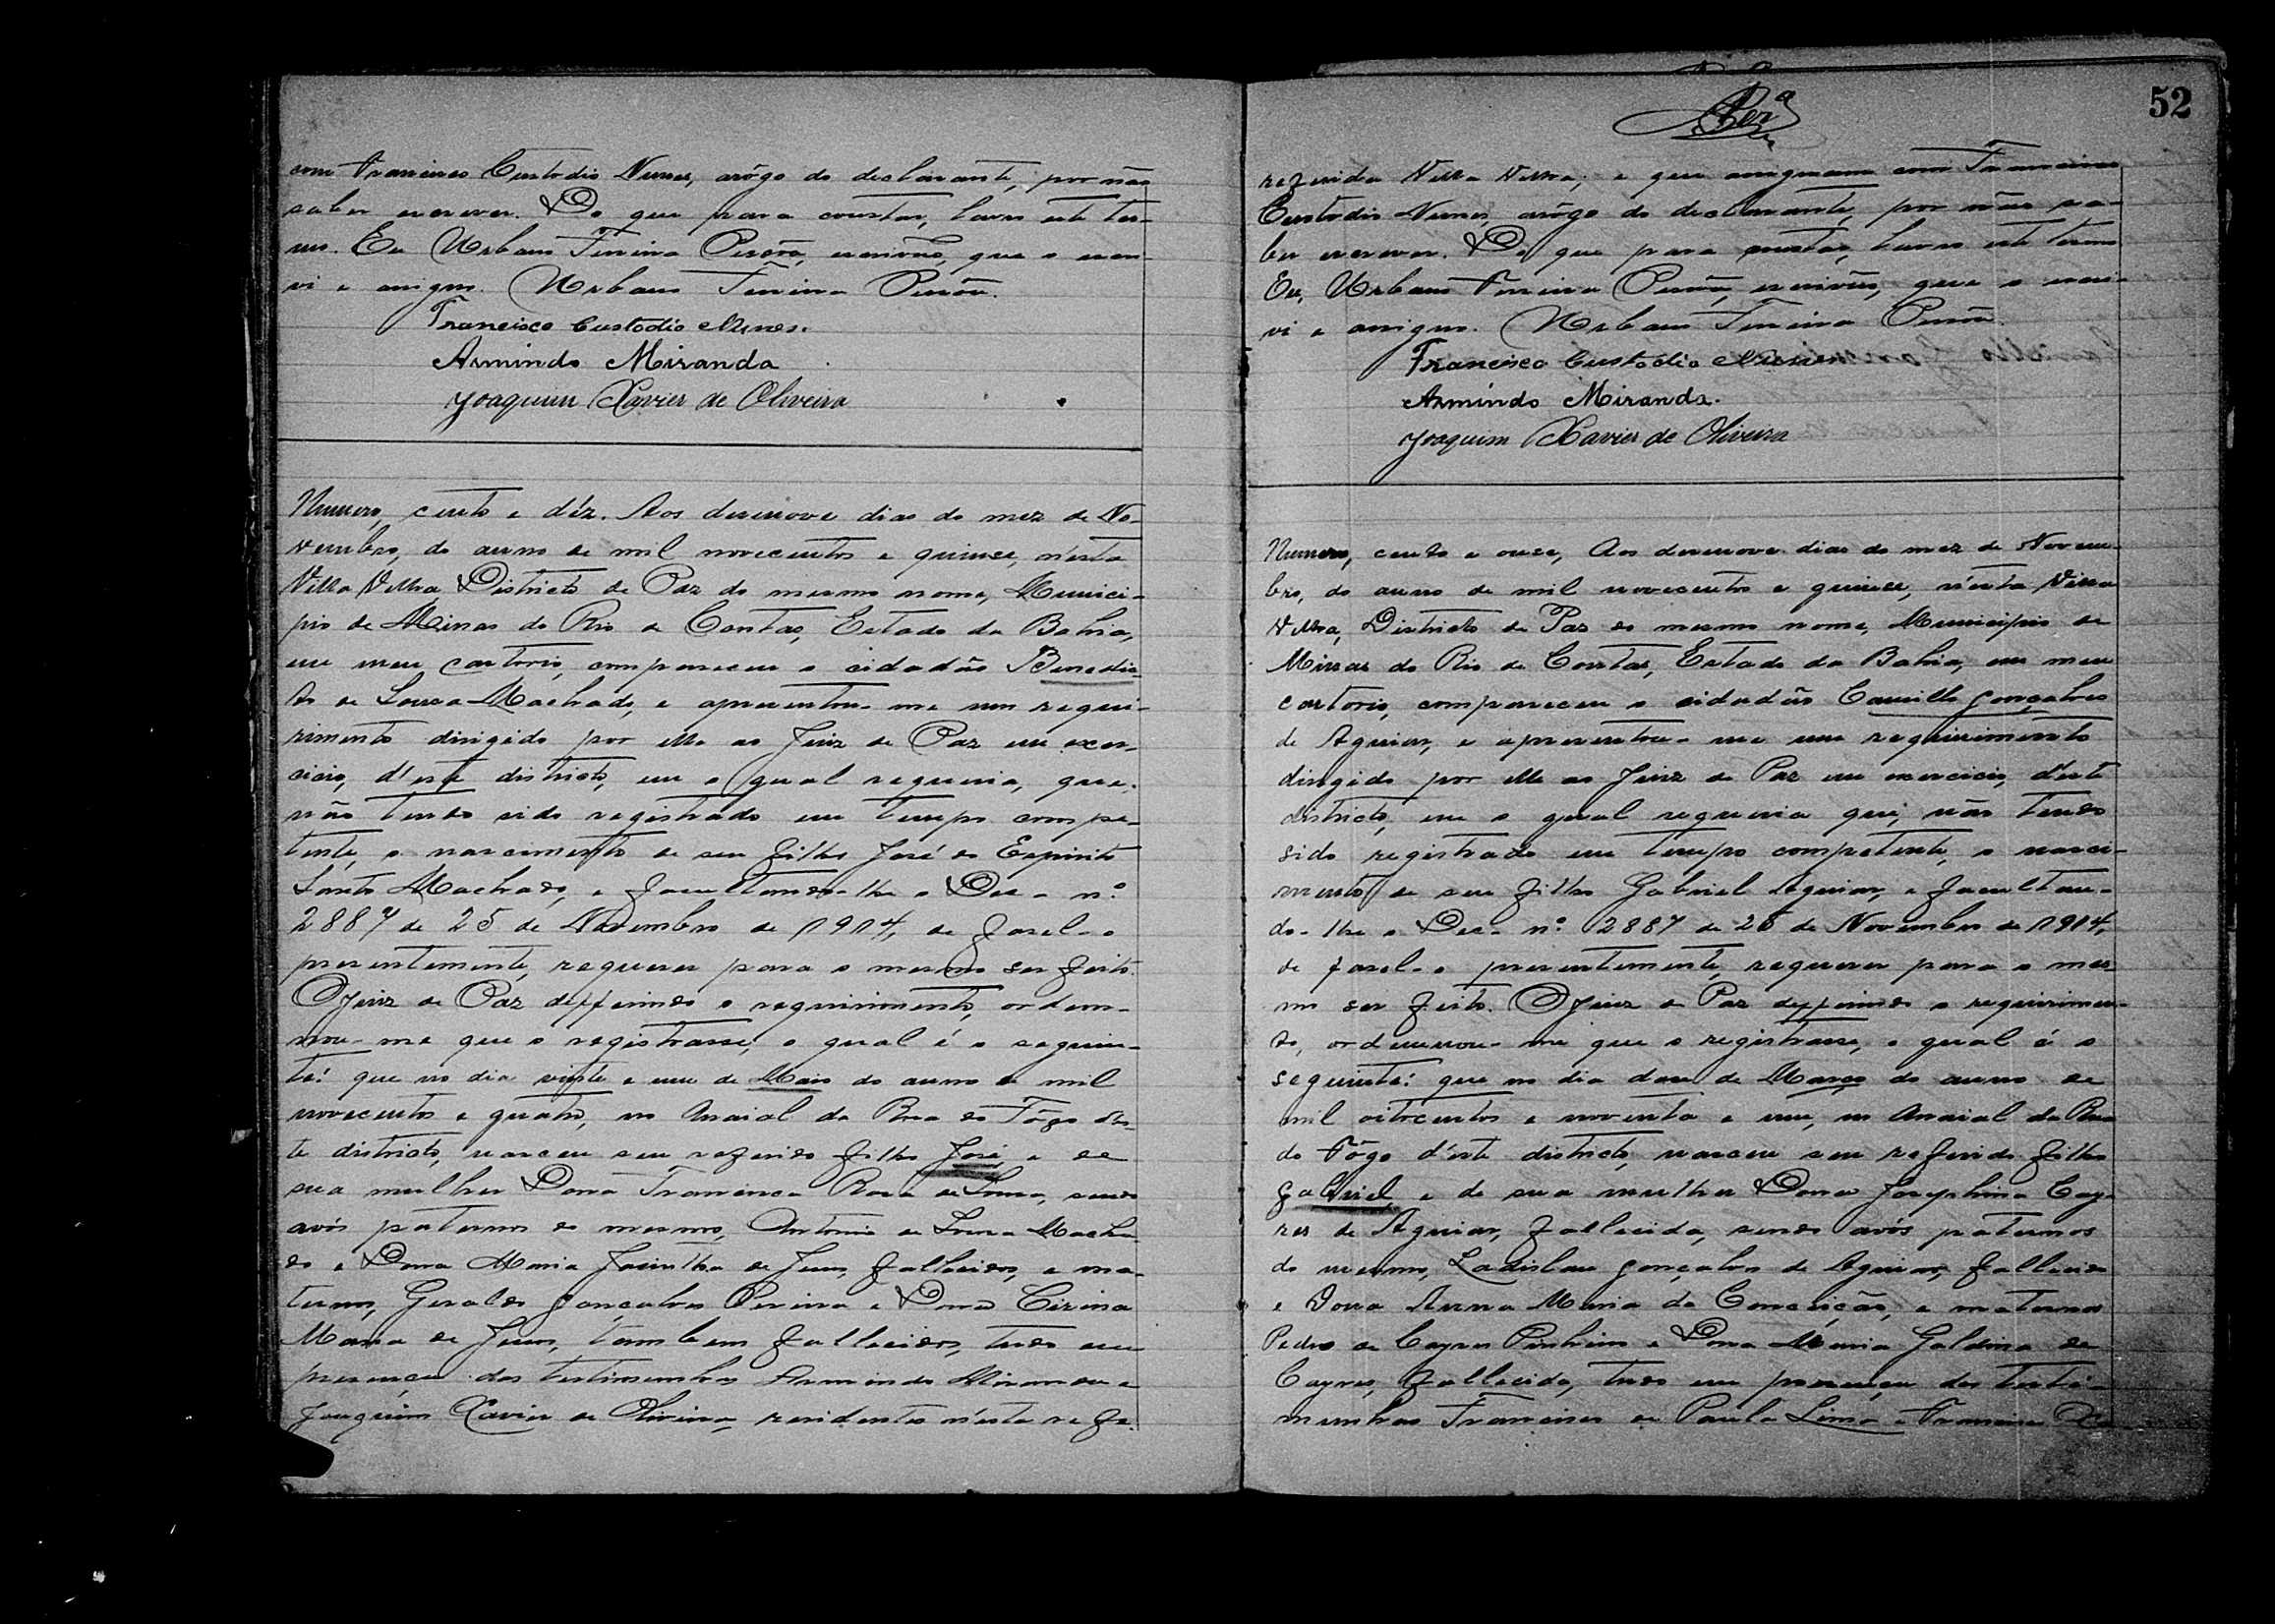 com Francisco Custodio Nunes, arôgo do declarante, por não
saber escrever. Do que para constar, lavro este ter-
mo. Eu Urbano Ferreira Pessôa, escrivão, que o escre-
vi e assigno. Urbano Ferreira Pessôa.
Francisco Custodio Nunes.
Armindo Miranda
Joaquim Xavier de Oliveira
Numero, cento e déz. Aos desenove dias do mez de No-
vembro, do anno de mil novecentos e quinse, n'esta
Villa Velha, Districto de Paz do mesmo nome, Munici-
pio de Minas do Rio de Contas, Estado da Bahia,
em meu cartorio, compareceu o cidadão Benedic-
to de Sousa Machado, e apresentou-me um requi-
rimento dirigido por elle ao Juiz de Paz em exer-
cicio, d'este districto, em o qual requeria, que,
não tendo sido registrado em tempo compe-
tente, o nascimento de seu filho José do Espirito
Santo Machado, e facultando-lhe o Dec- nº
2887 de 25 de Novembro de 1914, de fasel-o
presentemente, requerer para o mesmo ser feito.
O Juiz de Paz defferindo o requirimento, orden-
nou-me que o registrasse, o qual é o seguin-
te: que no dia vinte e um de Maio do anno de mil
novecentos e quatro, no Arraial da Boa do Fôgo des-
te districto, nasceu seu referido filho José, e de
sua mulher Dona Francisca Rosa de Sousa, sendo
avós paternos do mesmo, Antonio de Sousa Macha-
do e Dona Maria Jacintha de Jesus, fallecidos, e ma-
ternos, Geraldo Gonçalves Pereira e Dona Cirina
Maria de Jesus, tambem fallecidos, tudo em
presença das testimunhas Armindo Miranda e
Joaquim Xavier de Oliveira, residentes n'esta refe-
52
referida Villa Velha, e que assignam com Francisco
Custodio Nunes, arôgo do declarante, por não sa-
ber escrever. Do que para constar, lavro este termo
Eu, Urbano Ferreira Pessôa, escrivão, que o escre-
vi e assigno. Urbano Ferreira Pessôa.
Francisco Custodio Nunes
Armindo Miranda.
Joaquim Xavier de Oliveira
Numero, cento e onse, Aos desenove dias do mez de Novem-
bro, do anno de mil novecentos e quinse, n'esta Villa
Velha, Districto de Paz do mesmo nome, Municipio de
Minas do Rio de Contas, Estado da Bahia, em meu
cartorio, compareceu o cidadão Camillo Gonçalves
de Aguiar, e apresentou-me um requirimento
dirigido por elle ao Juiz de Paz em exercicio, d'este
districto, em o qual requeria que, não tendo
sido registrado em tempo competente, o nasci-
mento de seu filho Gabriel Aguiar, e facultan-
do-lhe o Dec- nº 2887 de 25 de Novembro de 1914,
de fasel-o presentemente, requerer para o mes-
mo ser feito. O Juiz de Paz defferindo o requirimen-
to, ordennou-me que o registrasse, o qual é o
seguinte: que no dia dose de Março do anno de
mil oitocentos e noventa e um, no Arraial da Boa
do Fôgo d'este districto, nasceu seu referido filho
Gabriel e de sua mulher Dona Josephina Cay-
res de Aguiar, fallecida, sendo avós paternos
do mesmo, Ladislau Gonçalves de Aguiar, fallecido
e Dona Anna Maria da Conceição, e maternos
Pedro de Cayres Pinheiro e Dona Maria Galdina de
Cayres, fallecida, tudo em presença das testi-
munhas Francisco de Paula Lima e Francisco Xa